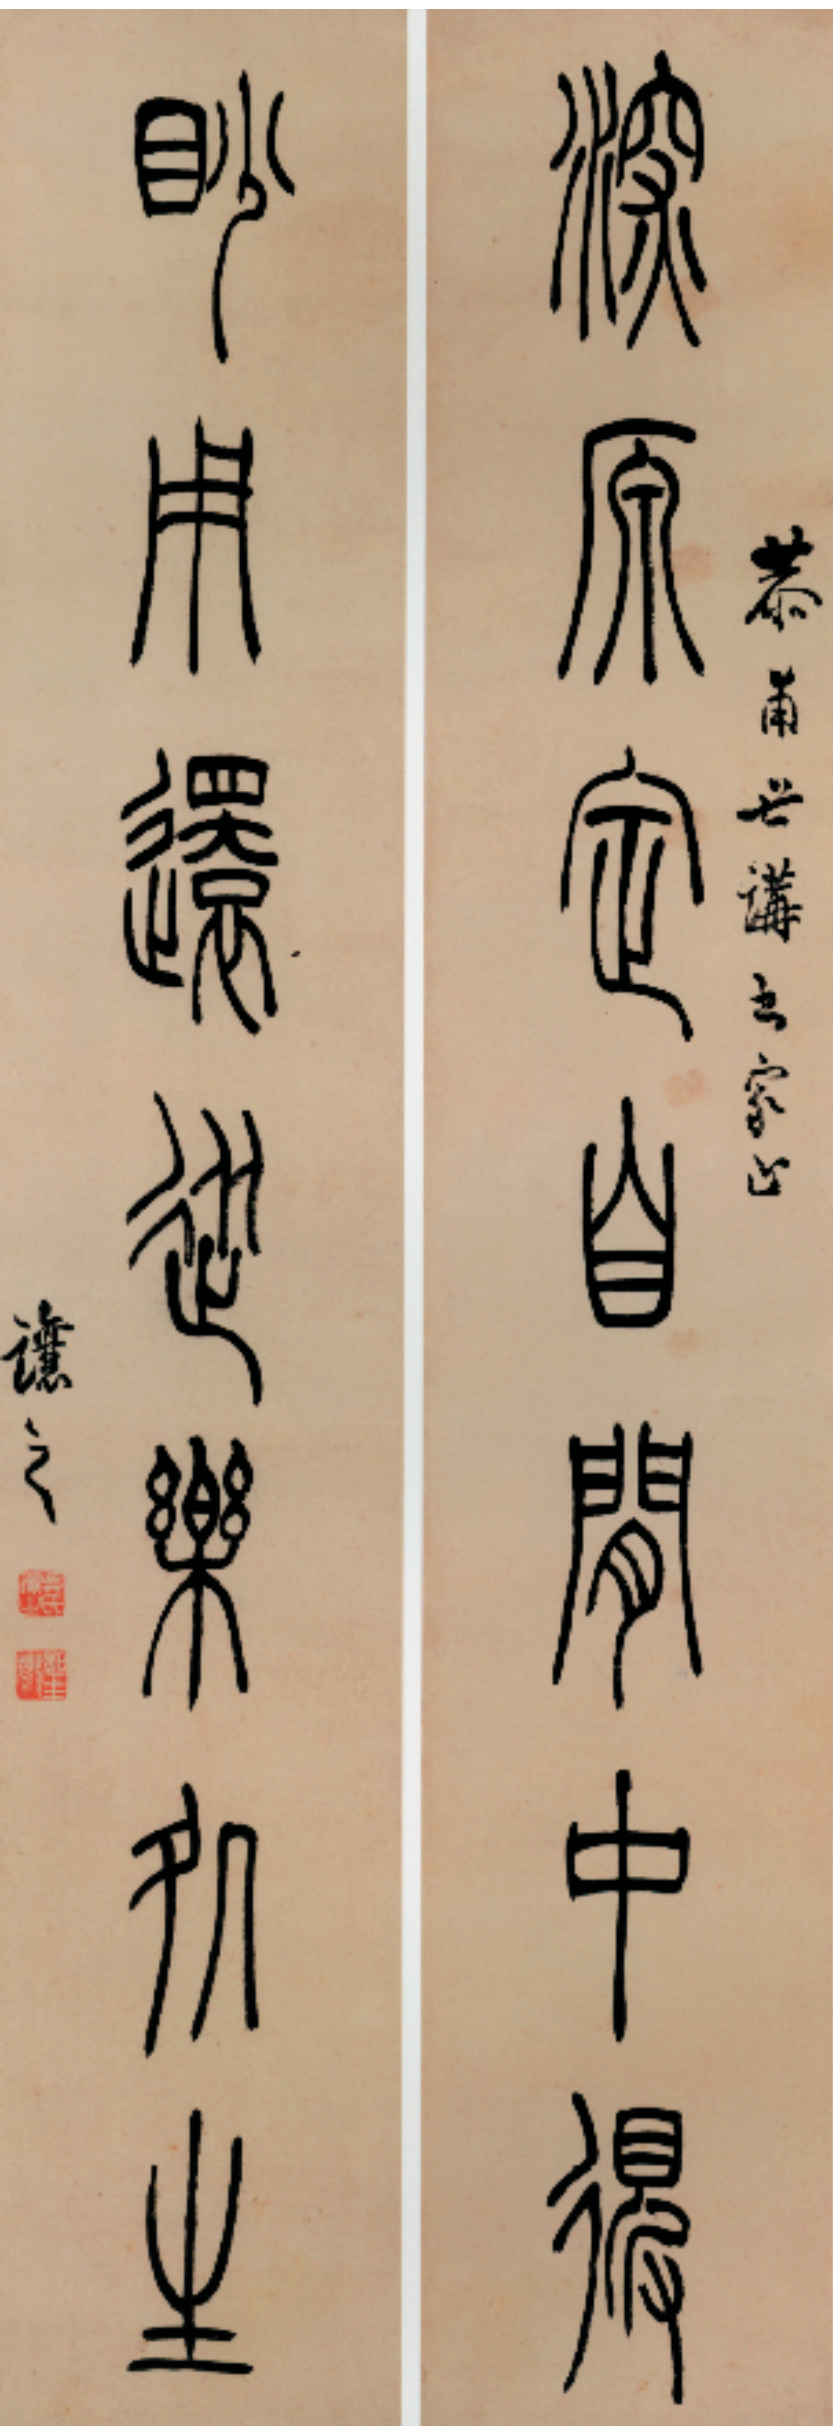 深原定自閒中得
恭甫世講書家正
眇用還從樂処生
讓之